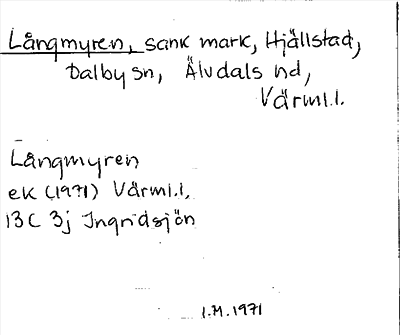 Långmyren, sank mark, Hjällstad,
Dalby sn, Älvdals hd,
Värml.l.
Långmyren
ek (1971) Värml.l,
13C 3j Ingridsjön
I.M. 1971